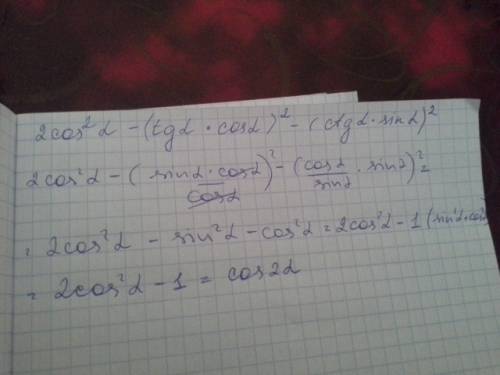 2cos²α - (tgα · cosα)² - (ctgα · sinα)²
2cos²α - (sinα · cosα / cosα)² - (cosα / sinα · sinα)² =
= 2cos²α - sin²α - cos²α = 2cos²α - 1 (sin²α + cos²
= 2cos²α - 1 = cos2α